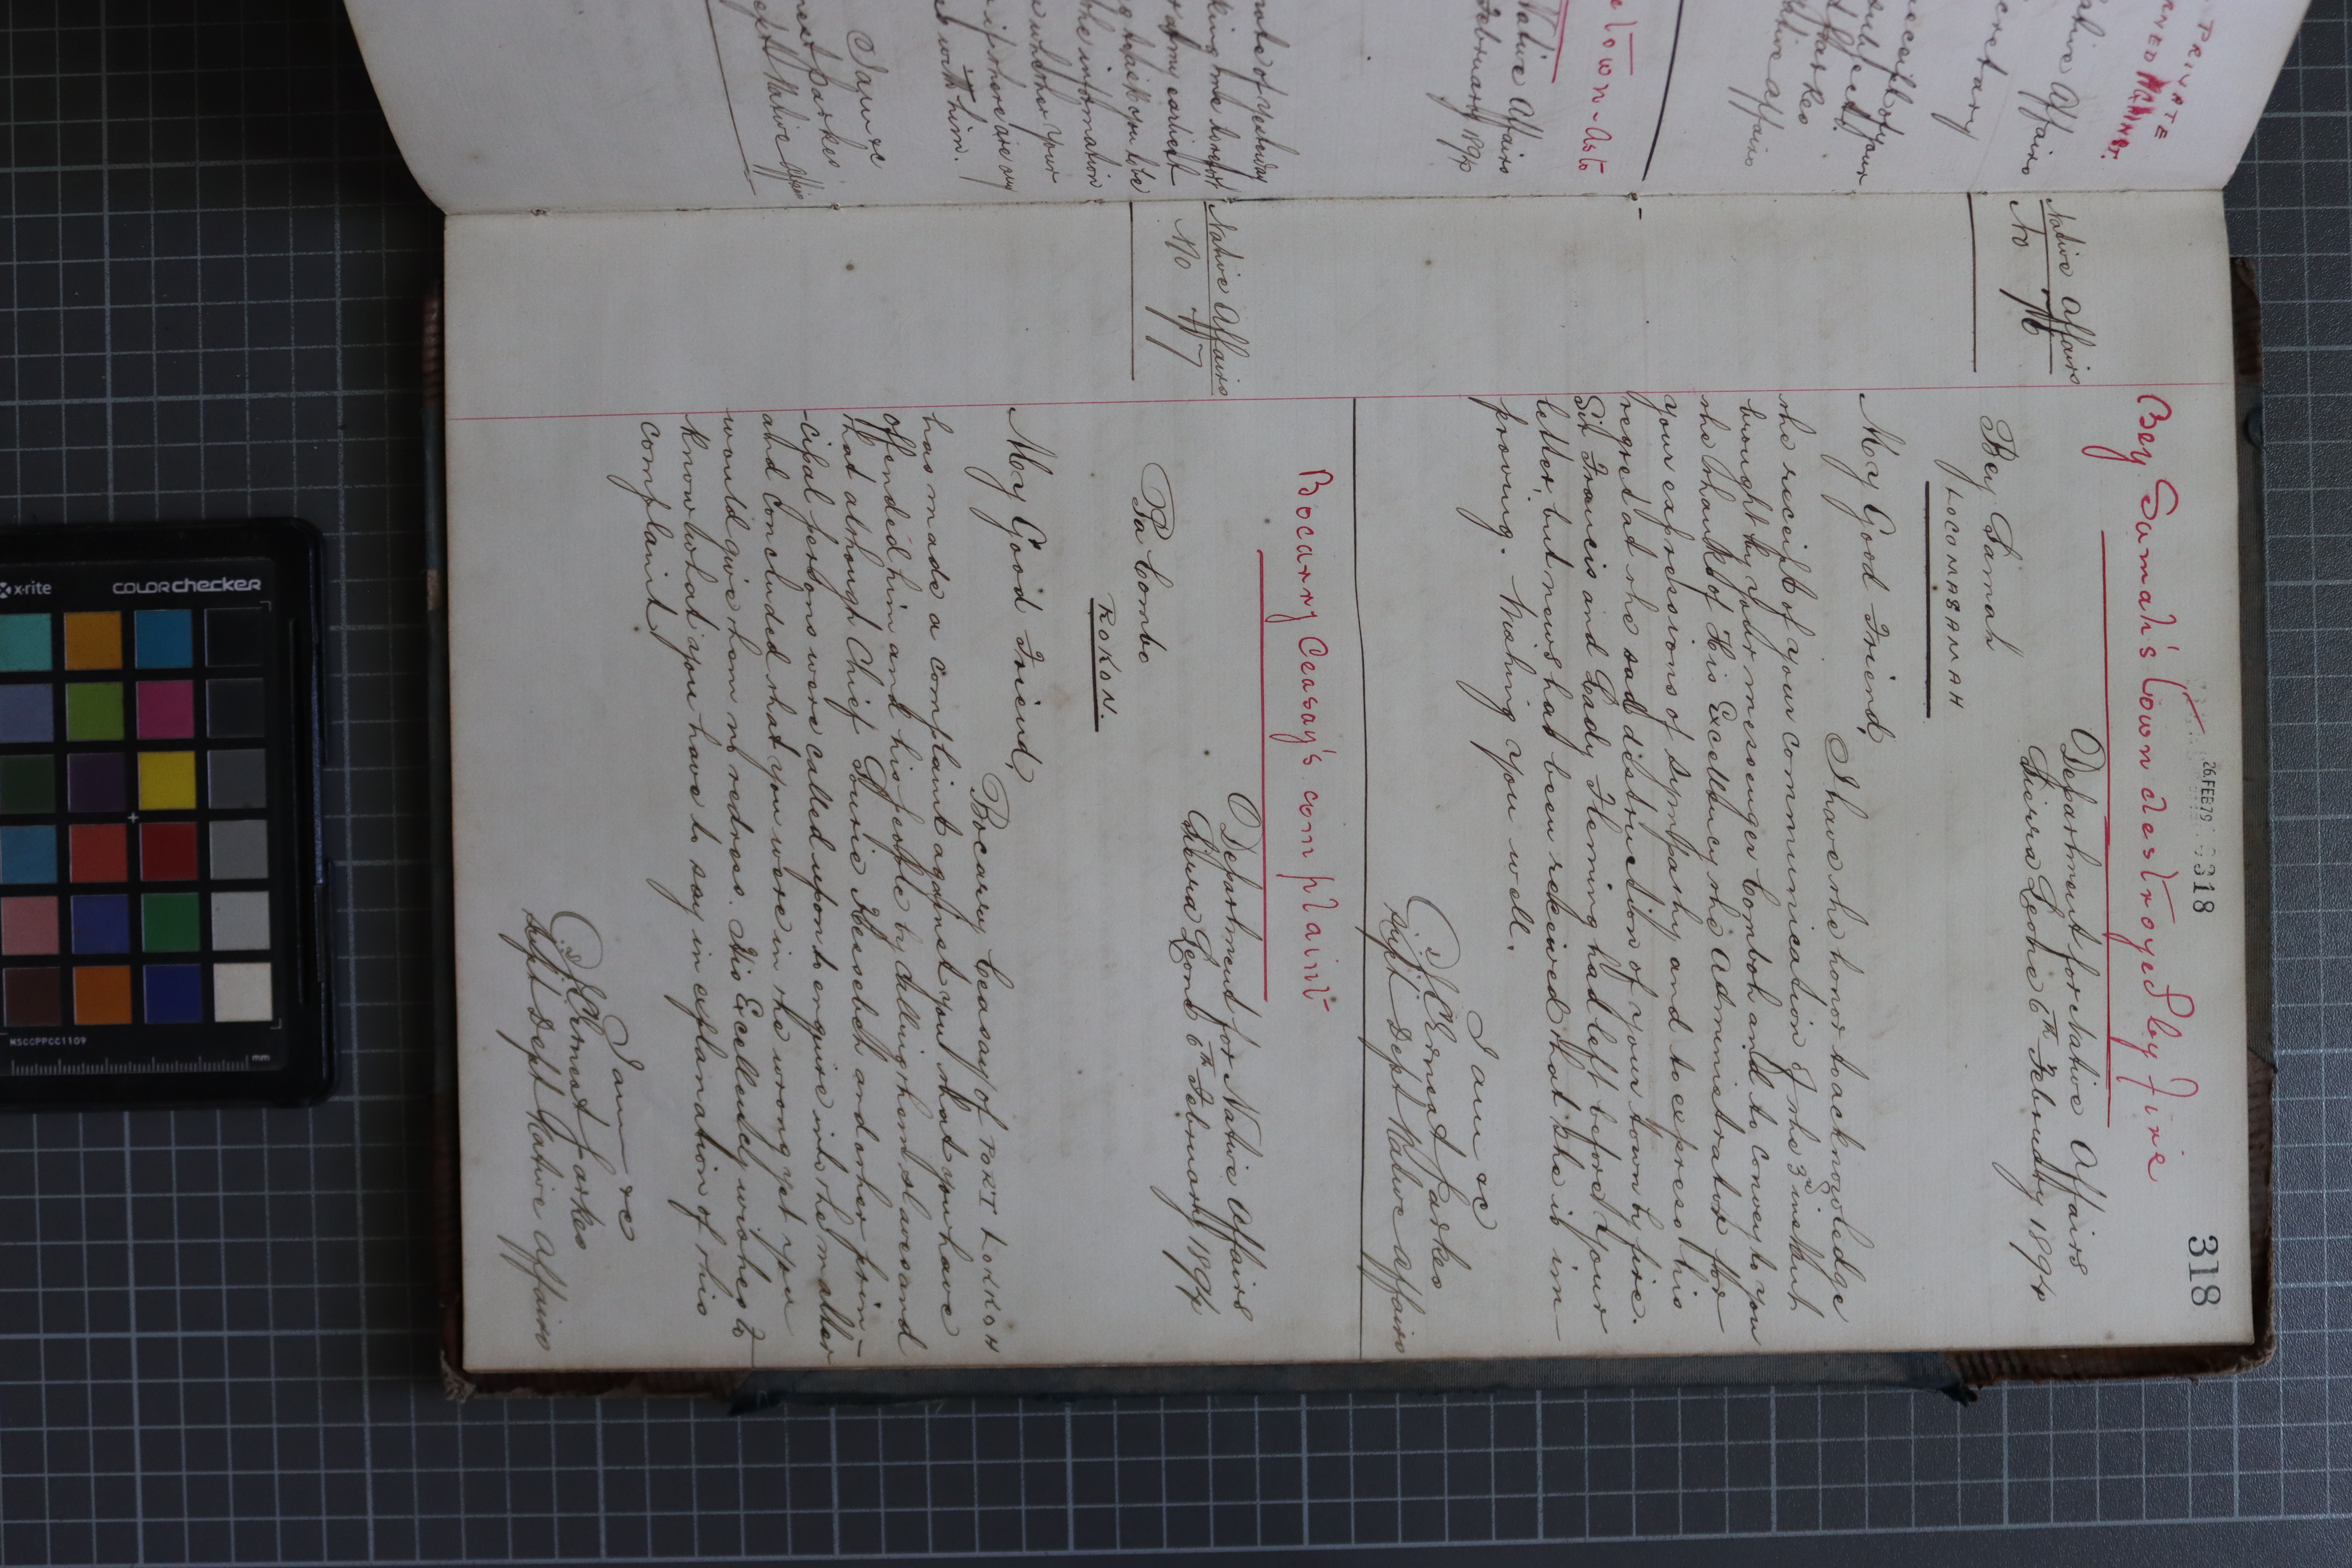 318
26 FEB 79 318
Bey Sumah's town destroyed by fire
Native Affairs
No 76
Department for Native Affairs
Sierra Leone 6th February 1894
Bey Simah
LOCOMASAMAH
My Good Friend,
I have the honor to acknowledge
the receipt of your communication of the 3rd instant
brought by your messenger Comboh and to convey to you
the thanks of His Excellency the Administrator for
your expressions of sympathy and to express his
regret at the sad distruction of your town by fire.
Sir Francis and Lady Fleming had left before your
letter, but news has been received that she is im-
proving. Wishing you well.
I am &c
J. C. Ernest Parkes
Supt Dept Native Affairs
Bocarry Ceasay's complaint
Native Affairs
No 77
Department for Native Affairs
Sierra Leone 6th February 1894
Pa Combo
ROKON.
My Good Friend,
Bocarry Ceasay of PORT LOKKOH
has made a complaint against you that you have
offended him and his people by calling them slaves and
that although Chief Surie Kessebeh and other prin-
-cipal persons were called upon to enquire into the matter
and concluded that you were in the wrong yet you
would give them no redress. His Excellency wishes to
know what you have to say in explanation of this
complaint.
I am &c
J. C. Ernest Parkes
Supt Dept Native Affairs
PRIVATE
Native Affairs
cretary
receipt of your
subject.
Parkes
Native Affairs
town - Asto
Native Affairs
February 1894
note of yesterday
king me to report
at my earliest
the information
whether your
if there are any
with him.
I am &c
nest Parkes
Dept Native Affairs
x-rite
COLORchecker
MSCCPPCC1109
mm